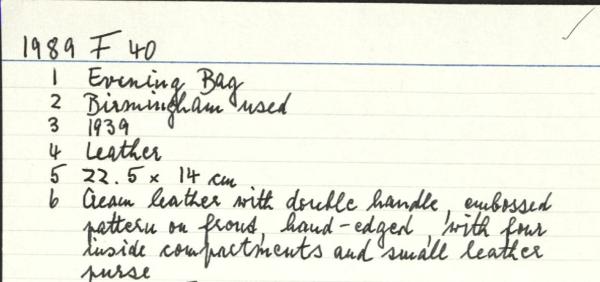 1989 F 40
1 Evening Bag
2 Birmingham used
3 1939
4 Leather
5 22.5 x 14 cm
6 Cream leather with double handle, embossed
pattern on front, hand-edged, with four
inside compartments and small leather
purse